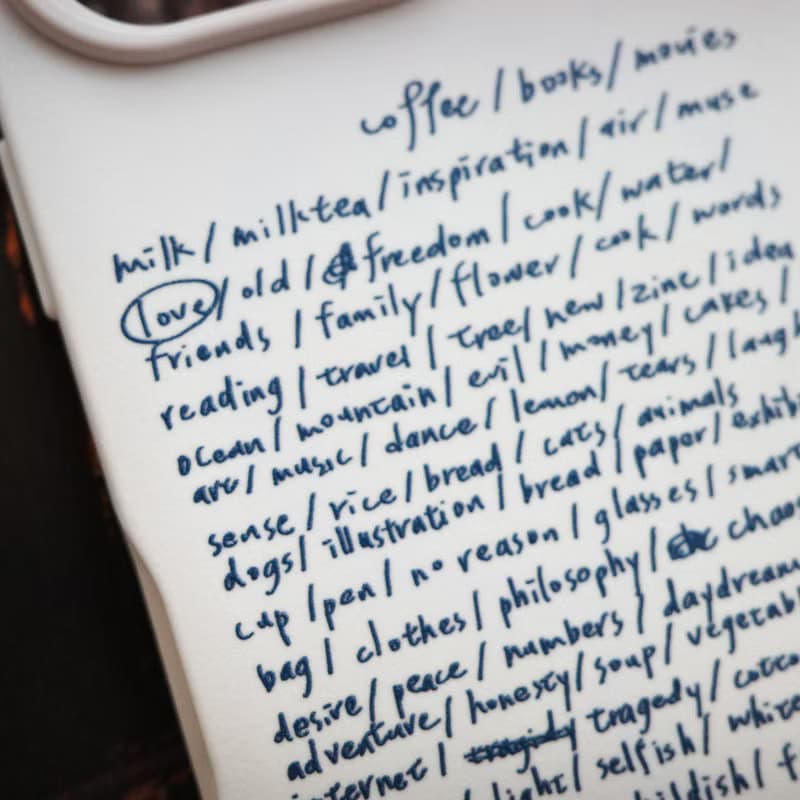 coffee / books / movies
milk / milk tea / inspiration / air / muse
love / old / freedom / cook / water /
friends / family / flower / cook / words
reading / travel / tree / new / zine / idea
ocean / mountain / evil / money / cakes /
art / music / dance / lemon / tears /
sense / rice / bread / cats / animals
dogs / illustration / bread / paper /
cup / pen / no reason / glasses /
bag / clothes / philosophy /
desire / peace / numbers /
adventure / honesty / soup /
internet / tragedy /
light / selfish /